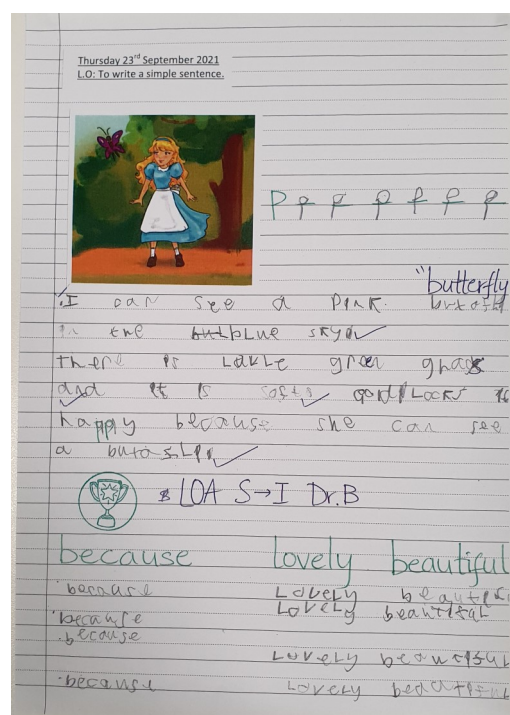 Thursday 23rd September 2021
L.O: To write a simple sentence.
P p p p p p p
"butterfly
I can see a Pink butofl
in the blue skya
there is LovLe green ghass
and it is softs gordlLocks is
happy because she can see
a butoflPp
LOA S→I Dr.B
because lovely beautiful
because Lovely beautiful
because Lovely beautiful
because
Lovely beautiful
because Lovely beatiful